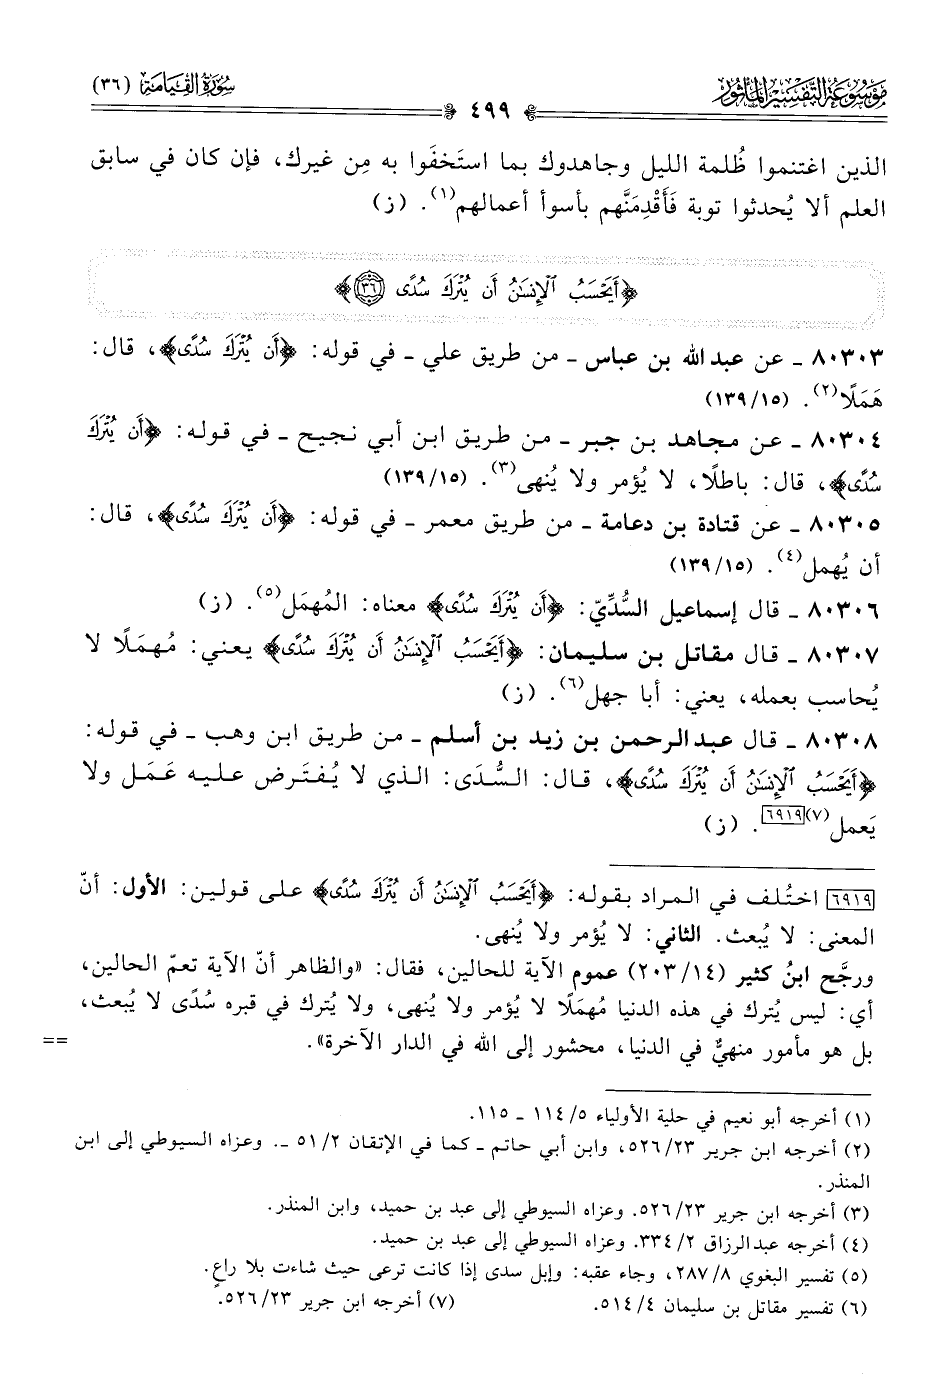 سُورَةُ القِيَامَةِ (٣٦)
مَوْسُوعَةُ التَّفْسِيرِ المَأْثُور
٤٩٩
الذين اغتنموا ظُلمة الليل وجاهدوك بما استَخفَوا به مِن غيرك، فإن كان في سابق
العلم ألا يُحدثوا توبة فَأَقْدِمَنَّهم بأسوأ أعمالهم(١). (ز)
﴿أَيَحْسَبُ ٱلْإِنسَٰنُ أَن يُتْرَكَ سُدًى ٣٦﴾
٨٠٣٠٣ ـ عن عبد الله بن عباس ـ من طريق علي ـ في قوله: ﴿أَن يُتْرَكَ سُدًى﴾، قال:
هَمَلًا(٢). (١٣٩/١٥)
٨٠٣٠٤ ـ عن مجاهد بن جبر ـ من طريق ابن أبي نجيح ـ في قوله: ﴿أَن يُتْرَكَ
سُدًى﴾، قال: باطلًا، لا يُؤمر ولا يُنهى(٣). (١٣٩/١٥)
٨٠٣٠٥ ـ عن قتادة بن دعامة ـ من طريق معمر ـ في قوله: ﴿أَن يُتْرَكَ سُدًى﴾، قال:
أن يُهمل(٤). (١٣٩/١٥)
٨٠٣٠٦ ـ قال إسماعيل السُّدِّيّ: ﴿أَن يُتْرَكَ سُدًى﴾ معناه: المُهمَل(٥). (ز)
٨٠٣٠٧ ـ قال مقاتل بن سليمان: ﴿أَيَحْسَبُ ٱلْإِنسَٰنُ أَن يُتْرَكَ سُدًى﴾ يعني: مُهمَلًا لا
يُحاسب بعمله، يعني: أبا جهل(٦). (ز)
٨٠٣٠٨ ـ قال عبد الرحمن بن زيد بن أسلم ـ من طريق ابن وهب ـ في قوله:
﴿أَيَحْسَبُ ٱلْإِنسَٰنُ أَن يُتْرَكَ سُدًى﴾، قال: السُّدَى: الذي لا يُفتَرض عليه عَمَل ولا
يَعمل(٧)[٦٩١٩]. (ز)
[٦٩١٩] اختُلف في المراد بقوله: ﴿أَيَحْسَبُ ٱلْإِنسَٰنُ أَن يُتْرَكَ سُدًى﴾ على قولين: الأول: أنّ
المعنى: لا يُبعث. الثاني: لا يُؤمر ولا يُنهى.
ورجَّح ابنُ كثير (٢٠٣/١٤) عموم الآية للحالين، فقال: «والظاهر أنّ الآية تعمّ الحالين،
أي: ليس يُترك في هذه الدنيا مُهمَلًا لا يُؤمر ولا يُنهى، ولا يُترك في قبره سُدًى لا يُبعث،
بل هو مأمور منهيٌّ في الدنيا، محشور إلى الله في الدار الآخرة». ==
(١) أخرجه أبو نعيم في حلية الأولياء ٥/ ١١٤ ـ ١١٥.
(٢) أخرجه ابن جرير ٢٣/ ٥٢٦، وابن أبي حاتم ـ كما في الإتقان ٢/ ٥١ ـ. وعزاه السيوطي إلى ابن
المنذر.
(٣) أخرجه ابن جرير ٢٣/ ٥٢٦. وعزاه السيوطي إلى عبد بن حميد، وابن المنذر.
(٤) أخرجه عبد الرزاق ٢/ ٣٣٤. وعزاه السيوطي إلى عبد بن حميد.
(٥) تفسير البغوي ٨/ ٢٨٧، وجاء عقبه: وإبل سدى إذا كانت ترعى حيث شاءت بلا راعٍ.
(٦) تفسير مقاتل بن سليمان ٤/ ٥١٤. (٧) أخرجه ابن جرير ٢٣/ ٥٢٦.